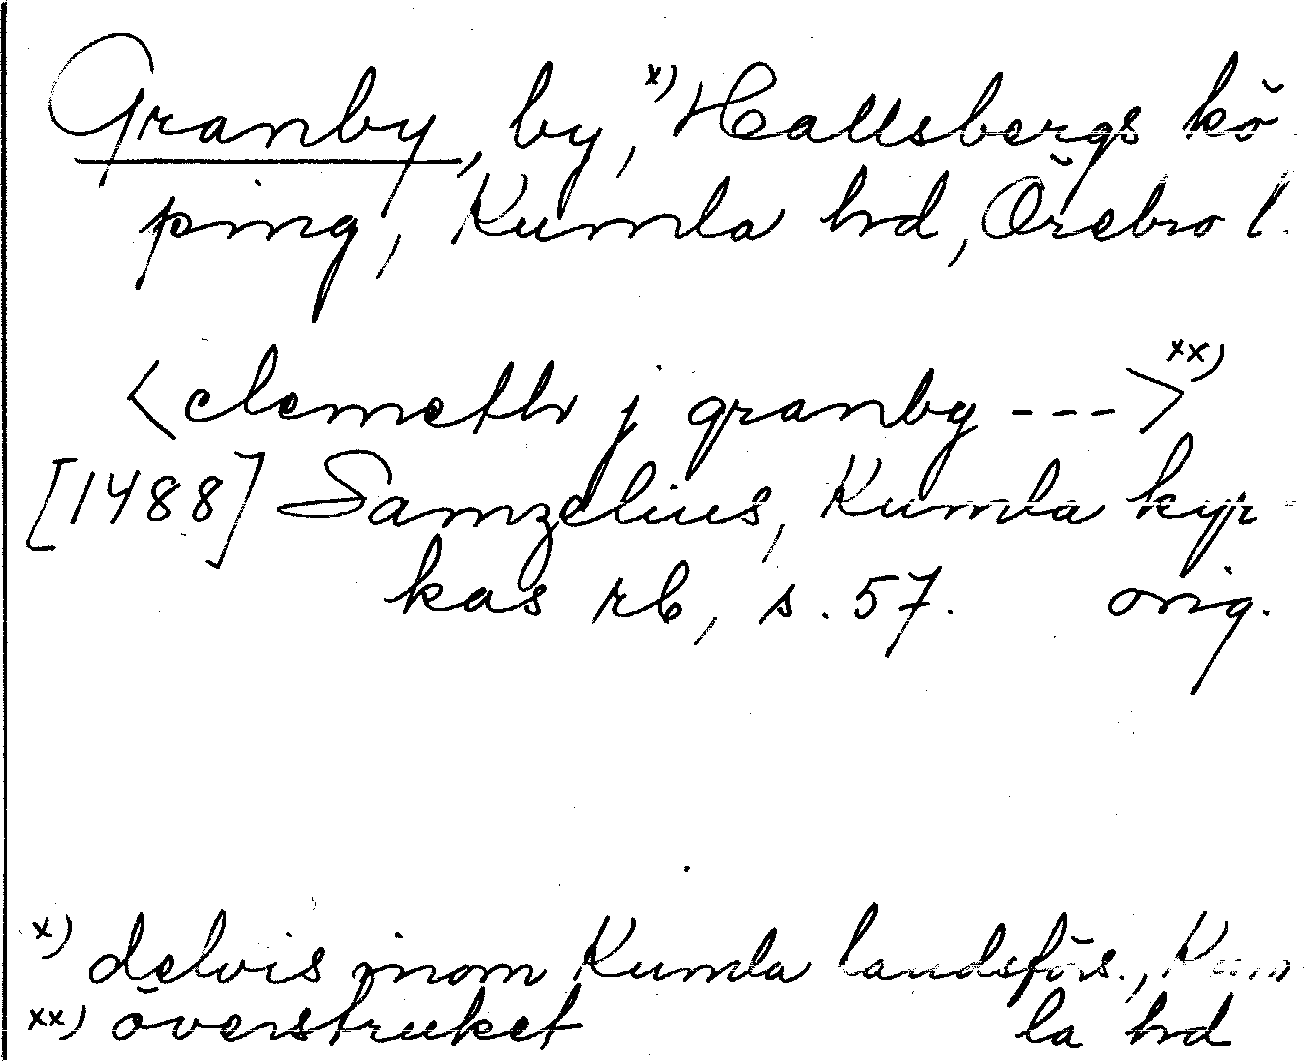 Granby, by, x) Hallsbergs kö-
ping, Kumla hd, Örebro l.
<clemeth j granby --->xx)
[1488] Samzelius, Kumla kyr-
kas rb, s. 57. orig.
x) delvis inom Kumla landsförs., Kum-
xx) överstruket la hd